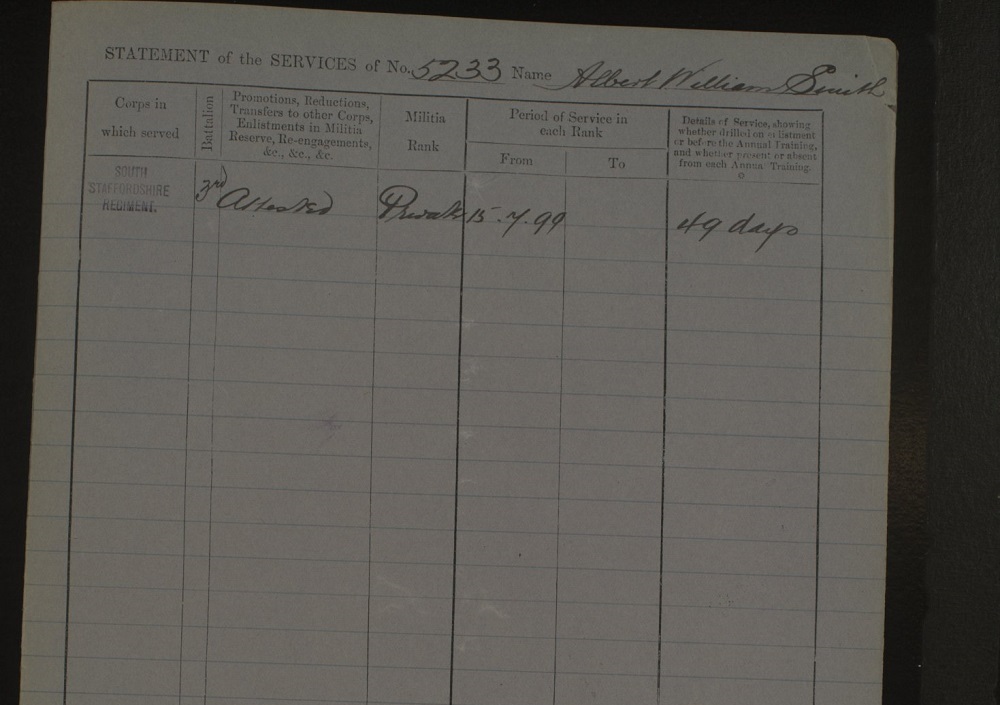 STATEMENT of the SERVICES of No. 5233 Name Albert William Smith
Corps in
which served
Battalion
Promotions, Reductions,
Transfers to other Corps,
Enlistments in Militia
Reserve, Re-engagements,
&c., &c., &c.
Militia
Rank
Period of Service in
each Rank
From
To
Details of Service, showing
whether drilled on enlistment
or before the Annual Training,
and whether present or absent
from each Annual Training.
SOUTH
STAFFORDSHIRE
REGIMENT.
3rd
Attested
Private
15.7.99
49 days